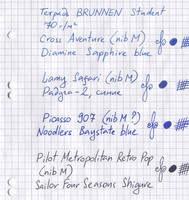 Тетрадь BRUNNEN Student
70 г/м²
Cross Aventura (nib M)
Diamine Sapphire blue
Lamy Safari (nib M)
Радуга-2, синие
Picasso 907 (nib M?)
Noodlers Baystate blue
Pilot Metropolitan Retro Pop
(nib M)
Sailor Four Seasons Shigure